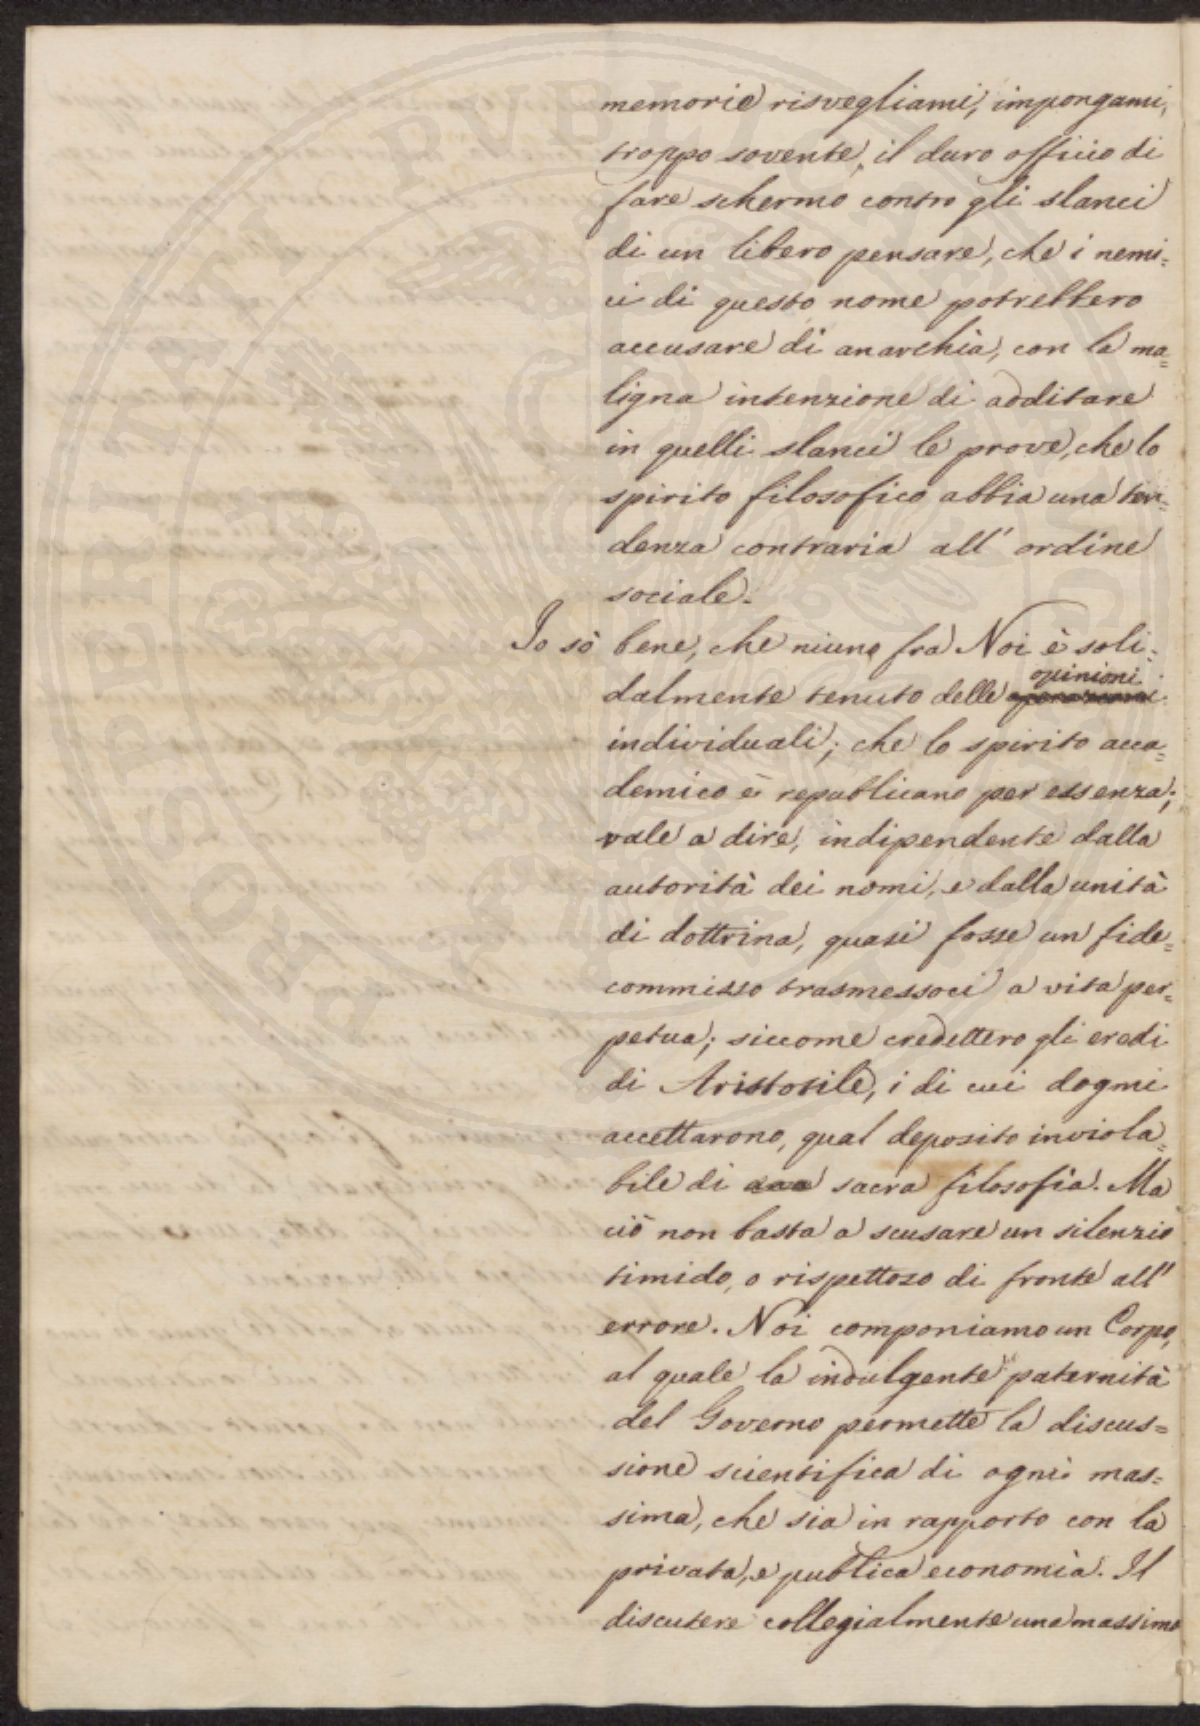 memorie risvegliami, impongami,
troppo sovente, il duro officio di
fare schermo contro gli slanci
di un libero pensare, che i nemi=
ci di questo nome potrebbero
accusare di anarchia, con la ma=
ligna intenzione di additare
in quelli slanci le prove, che lo
spirito filosofico abbia una ten=
denza contraria all' ordine
sociale.
Io sò bene, che niuno fra Noi è soli=
opinioni
dalmente tenuto delle
individuali; che lo spirito acca=
demico è republicano per essenza;
vale a dire, indipendente dalla
autorità dei nomi, e dalla unità
di dottrina, quasi fosse un fide=
commisso trasmessoci a vita per=
petua; siccome credettero gli eredi
di Aristotile, i di cui dogmi
accettarono, qual deposito inviola=
bile di sacra filosofia. Ma
ciò non basta a scusare un silenzio
timido, o rispettoso di fronte all'
errore. Noi componiamo un Corpo,
al quale la indulgente paternità
del Governo permette la discus=
sione scientifica di ogni mas=
sima, che sia in rapporto con la
privata, e publica economia. Il
discutere collegialmente una massima
PROSPERITATI PVBLICAE